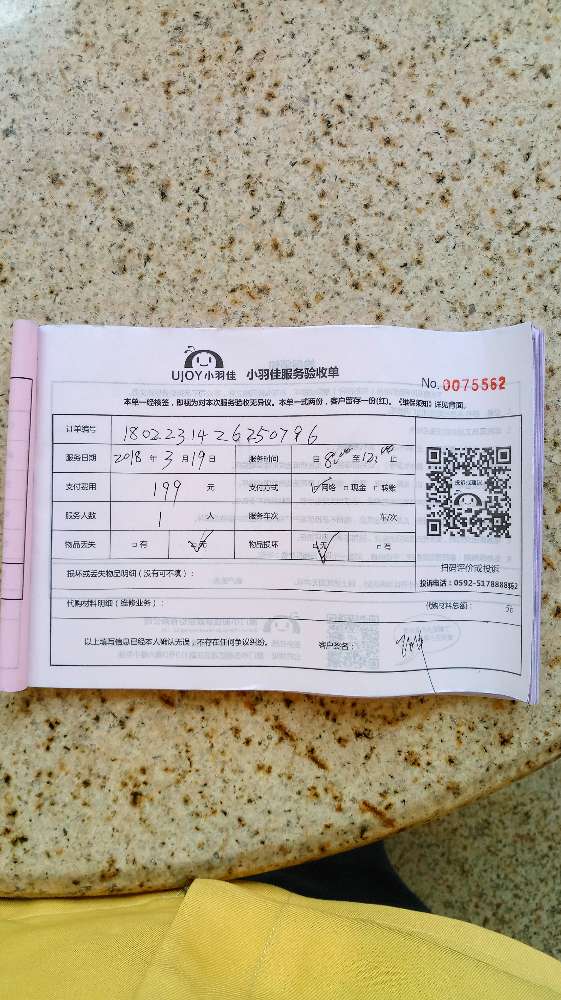 UJOY小羽佳 小羽佳服务验收单
No. 0075562
本单一经核签，即视为对本次服务验收无异议。本单一式两份，客户留存一份(红)。《维保须知》详见背面。
订单编号 18022314262507
服务日期 2018年3月19日 服务时间 自8 至12 止
支付费用 199 元 支付方式 网络 □现金 □转账
服务人数 1 人 服务车次 车/次
物品丢失 □有 无 物品损坏 无 □有
扫码评价或投诉
损坏或丢失物品明细（没有可不填）：
投诉电话：0592-5178888转2
代购材料明细（维修业务）： 代购材料总额： 元
以上填写信息已经本人确认无误，不存在任何争议纠纷。 客户签名：